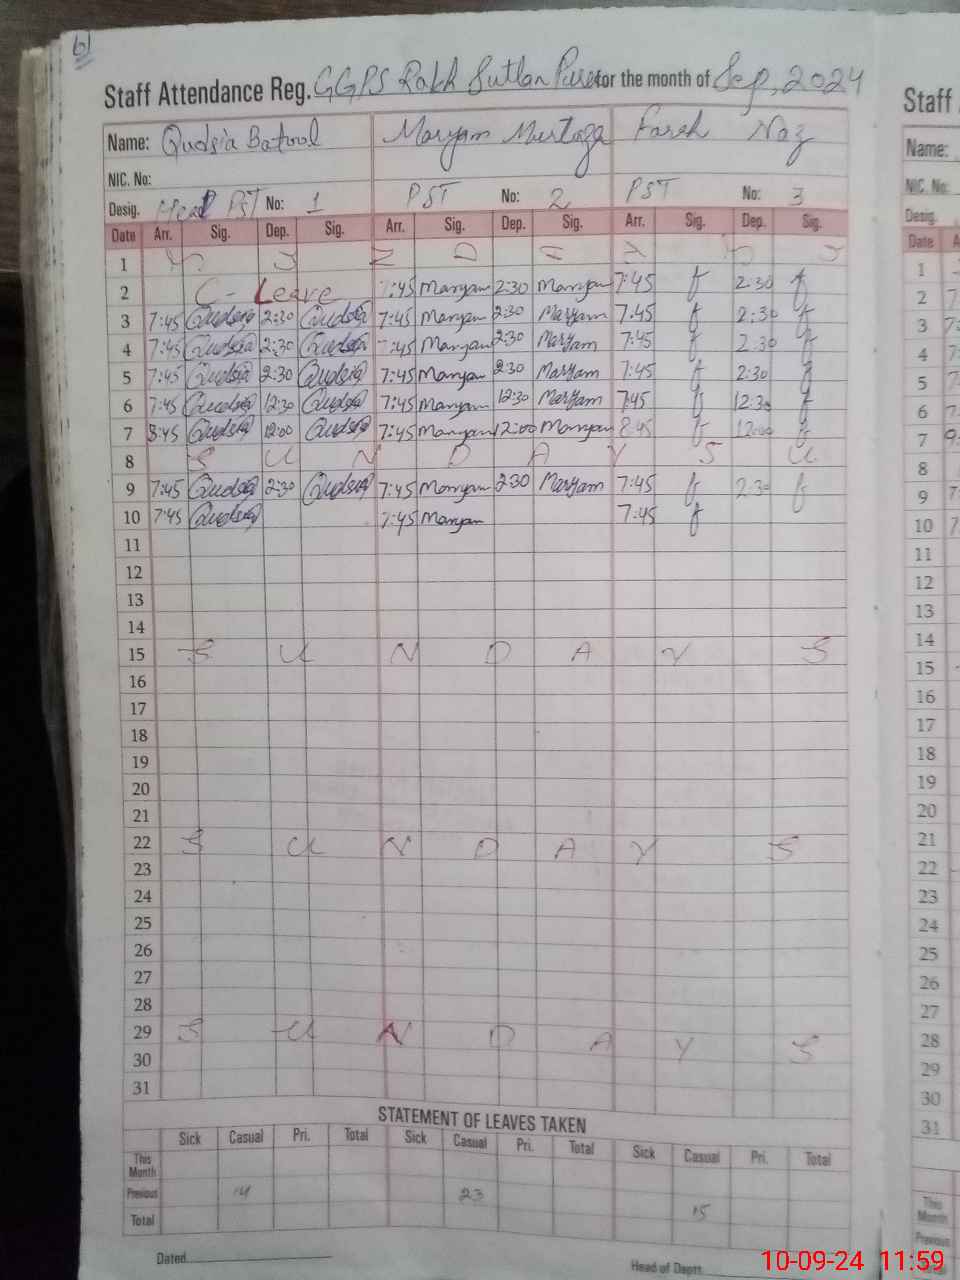 61
Staff Attendance Reg. GGPS Rakh Sutlan Pure for the month of Sep, 2024
Name: Qudsia Batool Maryam Murtaza Farah Naz
NIC. No:
Desig. Head PST No: 1 PST No: 2 PST No: 3
Date Arr. Sig. Dep. Sig. Arr. Sig. Dep. Sig. Arr. Sig. Dep. Sig.
1 S U N D A Y S
2 C- Leave 7:45 Maryam 2:30 Maryam 7:45 f 2:30 f
3 7:45 Qudsia 2:30 Qudsia 7:45 Maryam 2:30 Maryam 7:45 f 2:30 f
4 7:45 Qudsia 2:30 Qudsia 7:45 Maryam 2:30 Maryam 7:45 f 2:30 f
5 7:45 Qudsia 2:30 Qudsia 7:45 Maryam 2:30 Maryam 7:45 f 2:30 f
6 7:45 Qudsia 12:30 Qudsia 7:45 Maryam 12:30 Maryam 7:45 f 12:30 f
7 8:45 Qudsia 12:00 Qudsia 7:45 Maryam 12:00 Maryam 8:45 f 12:00 f
8 S U N D A Y S U
9 7:45 Qudsia 2:30 Qudsia 7:45 Maryam 2:30 Maryam 7:45 f 2:30 f
10 7:45 Qudsia 7:45 Maryam 7:45 f
11
12
13
14
15 S U N D A Y S
16
17
18
19
20
21
22 S U N D A Y S
23
24
25
26
27
28
29 S U N D A Y S
30
31
STATEMENT OF LEAVES TAKEN
Sick Casual Pri. Total Sick Casual Pri. Total Sick Casual Pri. Total
This Month
Previous 14 23 15
Total
Dated
Head of Deptt.
Staff
Name:
NIC. No:
Desig.
Date A
1
2
3
4
5
6
7
8
9
10
11
12
13
14
15
16
17
18
19
20
21
22
23
24
25
26
27
28
29
30
31
This Month
Previous
10-09-24 11:59